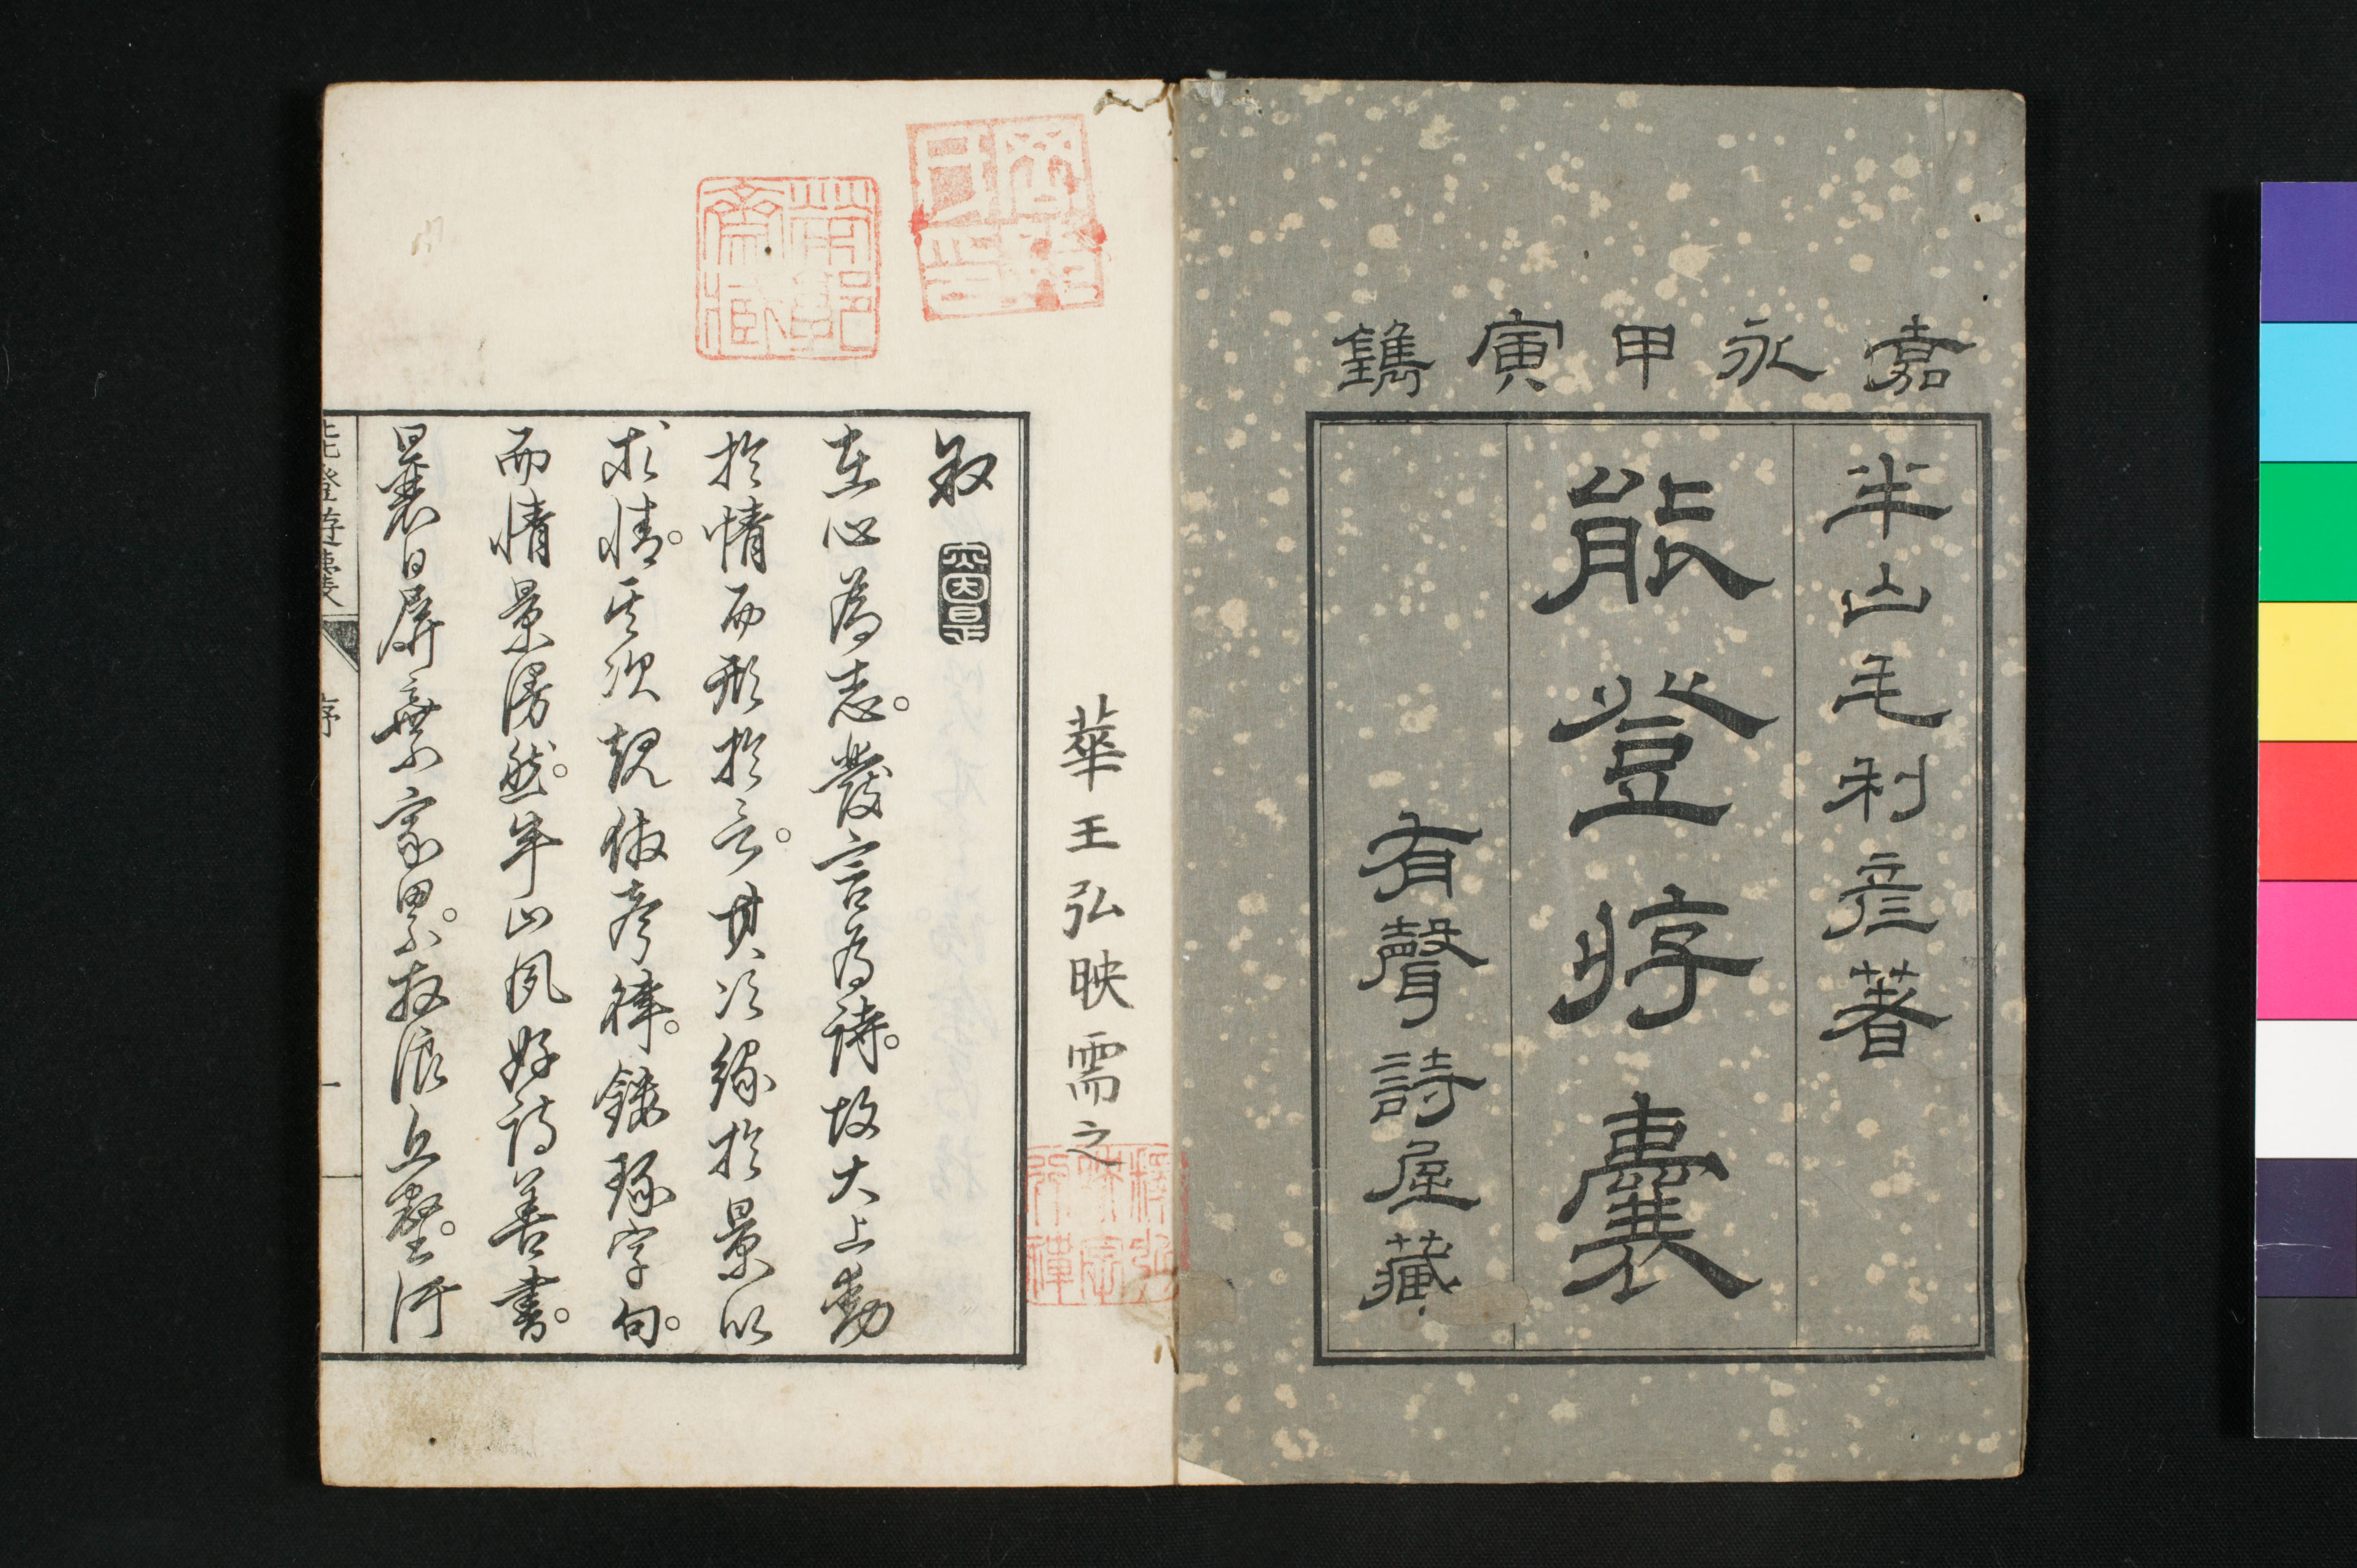 嘉永甲寅鐫
半山毛利彦著
能登游囊
有聲詩屋藏
華王弘映需之
叙
在心為志。發言為詩。故大上動
於情而形於言。其次緣於景以
求情。其次規倣彦律。錬琢字句。
而情景漫然。半山夙好詩善書。
曩日屏棄家累。放浪丘壑。所
能登游囊
序
一